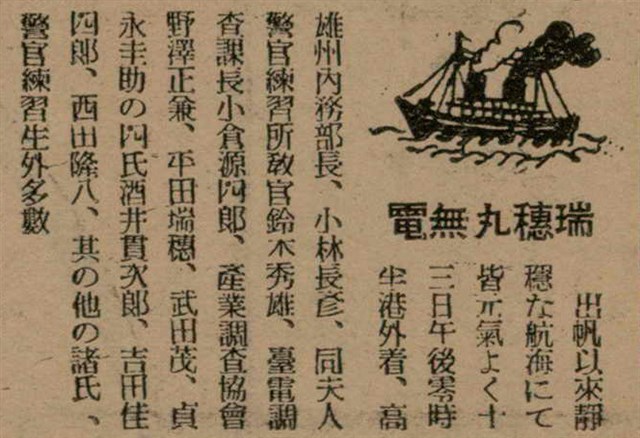 瑞穗丸無電
出帆以來靜
穩な航海にて
皆元氣よく十
三日午後零時
半港外着、高
雄州內務部長、小林長彥、同夫人
警官練習所敎官鈴木秀雄、臺電調
査課長小倉源四郎、產業調査協會
野澤正兼、平田瑞穗、武田茂、貞
永圭助の四氏酒井貫次郎、吉田佳
四郎、西田隆八、其の他の諸氏、
警官練習生外多數